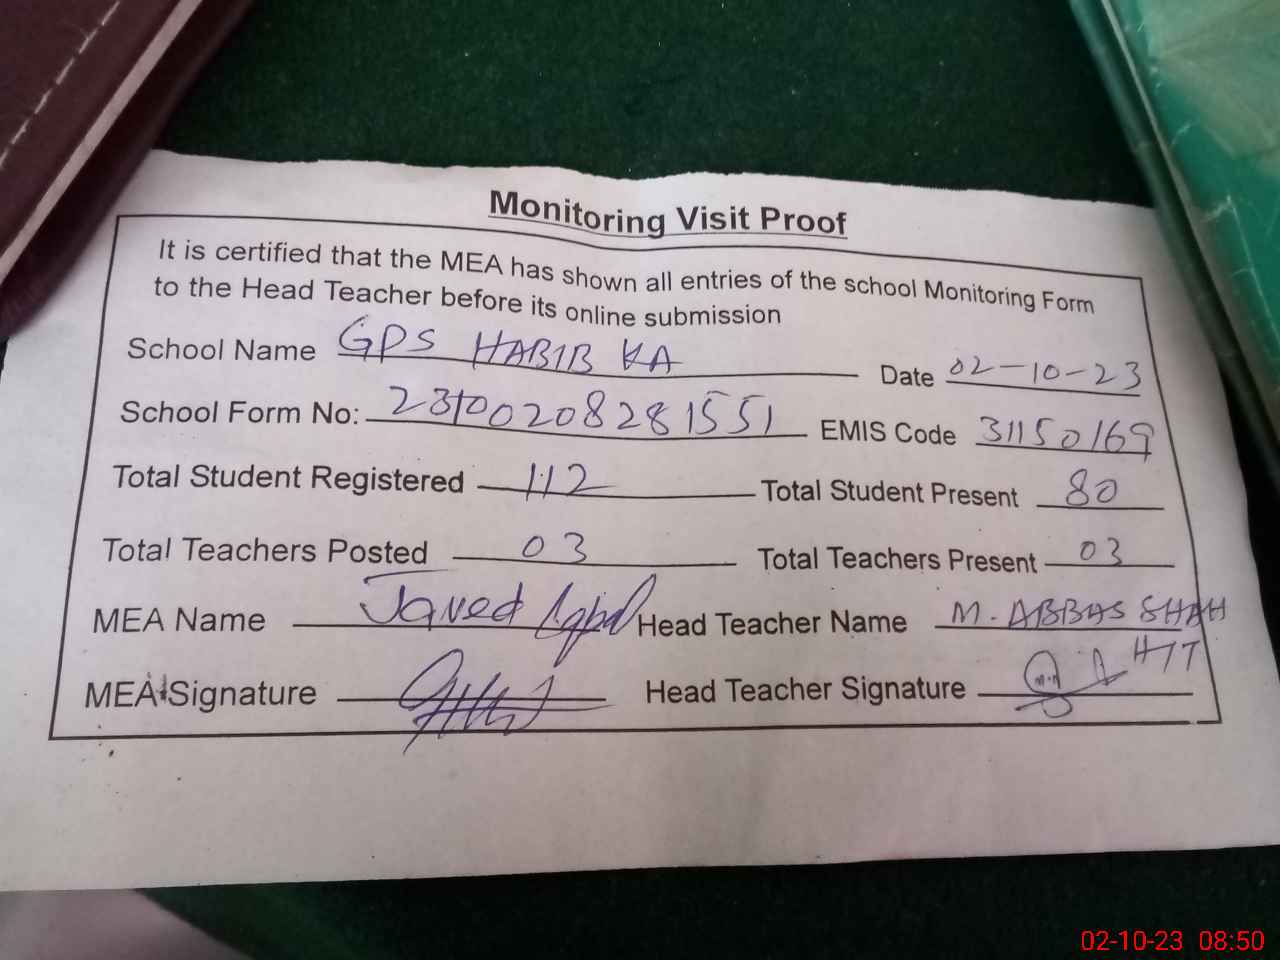 Monitoring Visit Proof
It is certified that the MEA has shown all entries of the school Monitoring Form
to the Head Teacher before its online submission
School Name GPS HABIB KA Date 02-10-23
School Form No: 23100208281551 EMIS Code 31150169
Total Student Registered 112 Total Student Present 80
Total Teachers Posted 03 Total Teachers Present 03
MEA Name Javed Iqbal Head Teacher Name M. ABBAS SHAH
MEA Signature Head Teacher Signature HTT
02-10-23 08:50